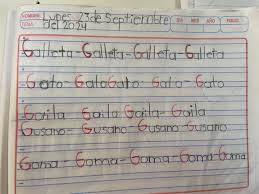 NOMBRE: Lunes 23 de Septiembre DIA MES AÑO
del 2024
Galleta - Galleta - Galleta - Galleta
Gato - Gato Gato Gato - Gato
Gaila Gaila Gaila - Gaila
Gusano - Gusano - Gusano - Gusano
Goma - Goma - Goma - Goma - Goma